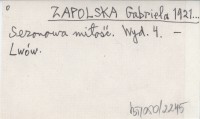 ZAPOLSKA Gabriela 1921...
Sezonowa miłość. Wyd. 4. —
Lwów.